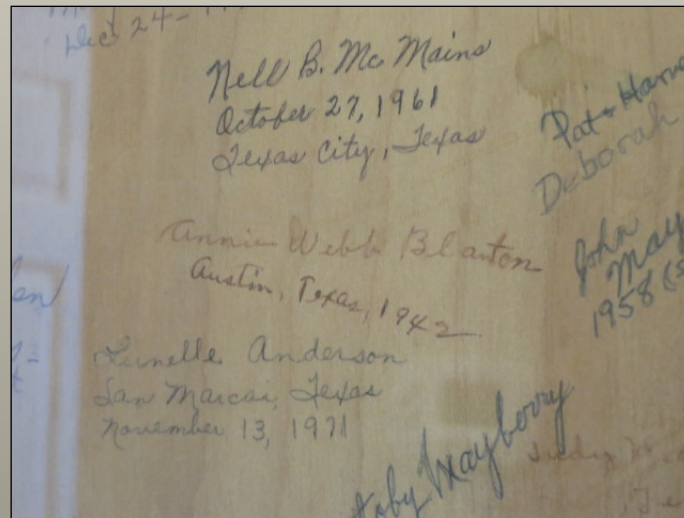 Dec 24-
Nell B. Mc Mains
October 27, 1961
Texas City, Texas
Pat &
Deborah
Annie Webb Blanton
Austin, Texas, 1942
John
May
1958
Lunelle Anderson
San Marcai, Texas
November 13, 1971
Toby Mayberry
Judy